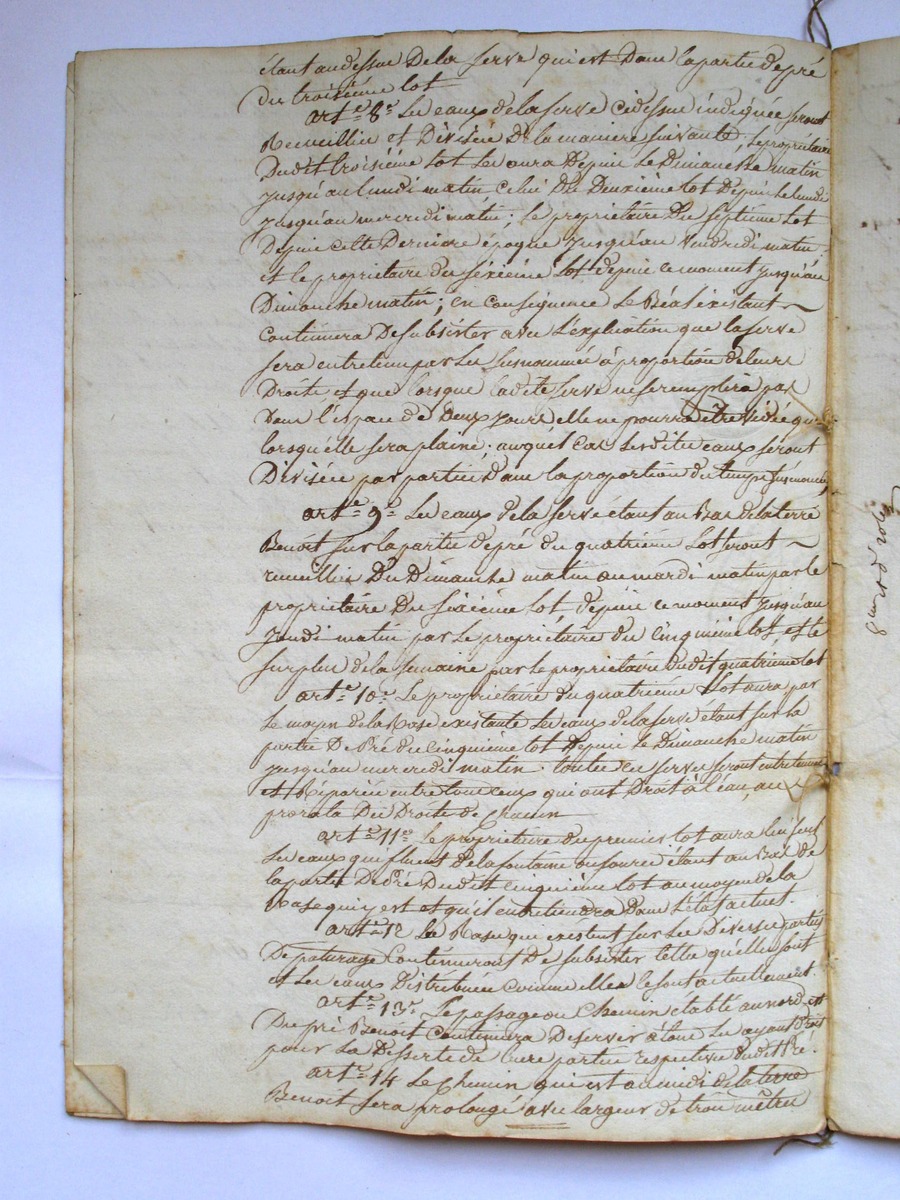 étant audessus De la serve qui est Dans la partie de pré
du troisième lot
arte. 8e. Les eaux de la serve cidessus indiquée seront
Recueillies et Divisées De la maniere suivante, le propriétaire
Dudit troisième lot les aura Depuis le Dimanche matin
jusqu'au lundi matin celui Du Deuxième lot Depuis le lundi
jusqu'au mercredi matin; le propriétaire Du septième lot
Depuis cette Derniere époque jusqu'au vendredi matin
et le propriétaire du sixième lot depuis ce moment jusqu'au
Dimanche matin; en conséquence le Béal existant
continuera De subsister avec l'explication que la serve
sera entretenue par les susnommés à proportion de leurs
Droits et que lorsque ladite serve ne se remplira pas
Dans l'espace de Deux jours elle ne pourra être vidée que
lorsqu'elle sera plaine, auquel cas lesdites eaux seront
Divisées par parties Dans la proportion du temps susénoncé,
arte. 9e. Les eaux de la serve étant au Bas de la terre
Benoit sur la partie de pré du quatrième lot seront
recueillies Du Dimanche matin au mardi matin par le
propriétaire Du sixième lot, depuis ce moment jusqu'au
Jeudi matin par le propriétaire du cinquième lot, et le
surplus de la semaine par le propriétaire dudit quatrième lot
arte. 10e. Le propriétaire du quatrième lot aura par
le moyen de la Rase existante les eaux de la serve étant sur la
partie De Pré du cinquième lot Depuis le Dimanche matin
jusqu'au mercredi matin. toutes ces serves seront entretenues
et Réparées entre tous ceux qui ont Droit à l'eau, au
prorata Des Droits de Chacun
arte. 11e. Le propriétaire du premier lot aura lui seul
les eaux qui fluent de la fontaine ou source étant au Bas de
la partie De Pré Dudit cinquième lot au moyen de la
Rase qui y est et qu'il entretiendra Dans l'état actuel.
arte. 12 Les Rases qui existent sur les Diverses parties
De paturage Continueront De subsister telles qu'elles sont
et Les eaux Distribuées comme elles le sont actuellement.
arte. 13e. Le passage ou Chemin établi au nord est
Du pré Benoit Continuera De servir à tous les ayant droit
pour la Desserte de leurs parties respectives dudit Pré.
arte. 14 Le Chemin qui est au midi de la terre
Benoit sera prolongé avec largeur de trois mètres